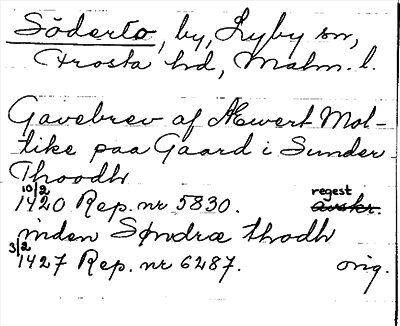 Söderto, by, Lyby sn,
Frosta hd, Malm. l.
Gavebrev af Ævert Mol-
tike paa Gaard i Sunder
Thoodh
10/2 1420 Rep. nr 5830. regest avskr.
inden Søndræ thodh
3/2 1427 Rep. nr 6287. orig.